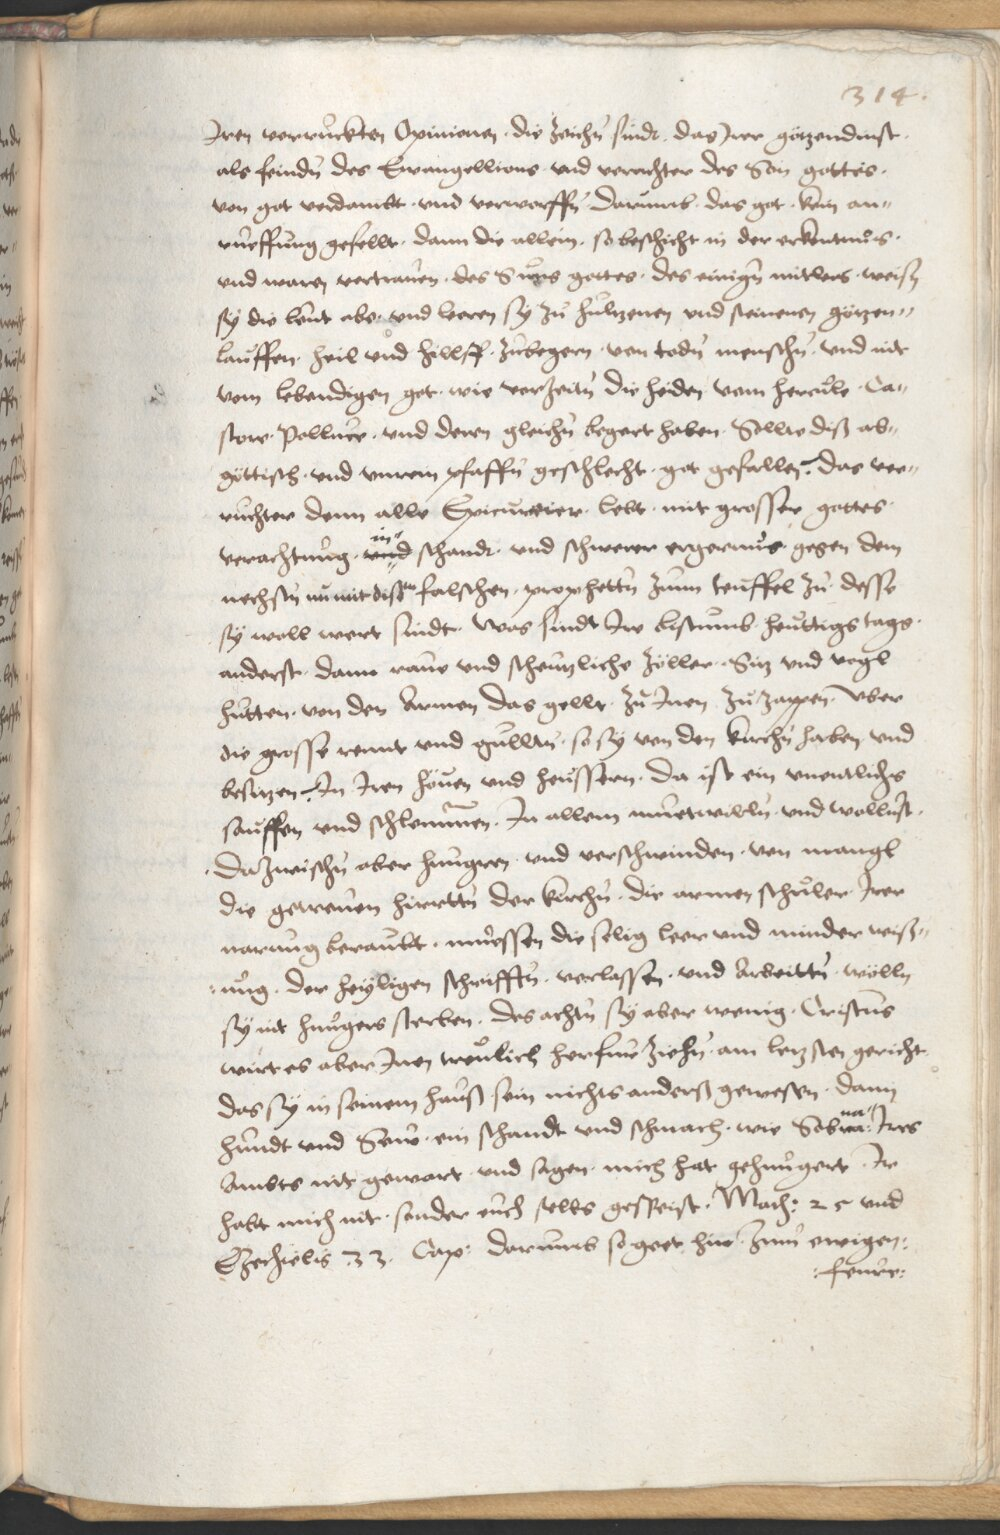 314.
Iren verruckten Opinionen. die zeichn sindt. das Irer götzendinst.
als feindn des Ewangellions vnd verachter des Son gottes.
von got verdambt. vnd verworffn Darumb. das got. kein an=
rueffung gefellt. dann die allein. so beschicht in der erkentnus.
vnd waren vertrauen. des Suns gottes. des einign mitlers. weisn
sÿ die leut abe. vnd leeren sÿ zu hultzenen vnd steinenen götzen=
lauffen. heil vnd hillff. zubegern. von todn menschn. vnd nit
vom lebendigen got. wie vorzeitn die heiden vom hercule. Ca=
store. Polluce. vnd deren gleichn begert haben. Sollte diss ab=
göttisch. vnd vnrein pfaffn geschlecht. got gefallen? das ver=
ruchter denn alle Epicureier. lebt. mit grosser gottes.
verachtung. in schandt. vnd schwerer ergernus. gegen dem
nechstn nu mit dissen falschen. prophettn zum teuffel zu. desse
sÿ woll wert sindt. Was sindt Ire bistumb. heuttigs tags.
anderst. dann raue vnd scheutzliche zöller. Sitz vnd vogl
hutten. von den Armen das gellt. zu Inen zu zappen. Vber
die grosse rennt vnd gulltn. so sÿ von den kirchn haben. vnd
besitzen. In Iren höuen vnd heussern. Da ist ein vnentlichs
sauffen vnd schlemmen. In allem muetwilln. vnd wollust.
Dazwischn aber hungren. vnd verschwinden. von mangl
die getreuen hirttn der kirchn. die armen schuler Irer
narung beraubt. muessen die selig leer vnd minder weiss=
ung. der heÿligen schrifftn. verlassen. vnd Arbeittn. wölln
sÿ nit hungers sterben. des achtn sÿ aber wenig. Cristus
wirt es aber Inen treulich herfur ziehn. am letzsten gericht.
das sÿ in seinem hauss sein nichts anderss gewesen. dann
hundt vnd Seue. ein schandt vnd schmach. wie Sobna: Ires
Ambts nit gewart. vnd sagen. mich hat gehungert. Ir
habt mich nit. sonder euch selbs gespeist. Math: 25 vnd
Ezechielis 33. Cap: darumb so geet hin. zum ewigen:
:feure: